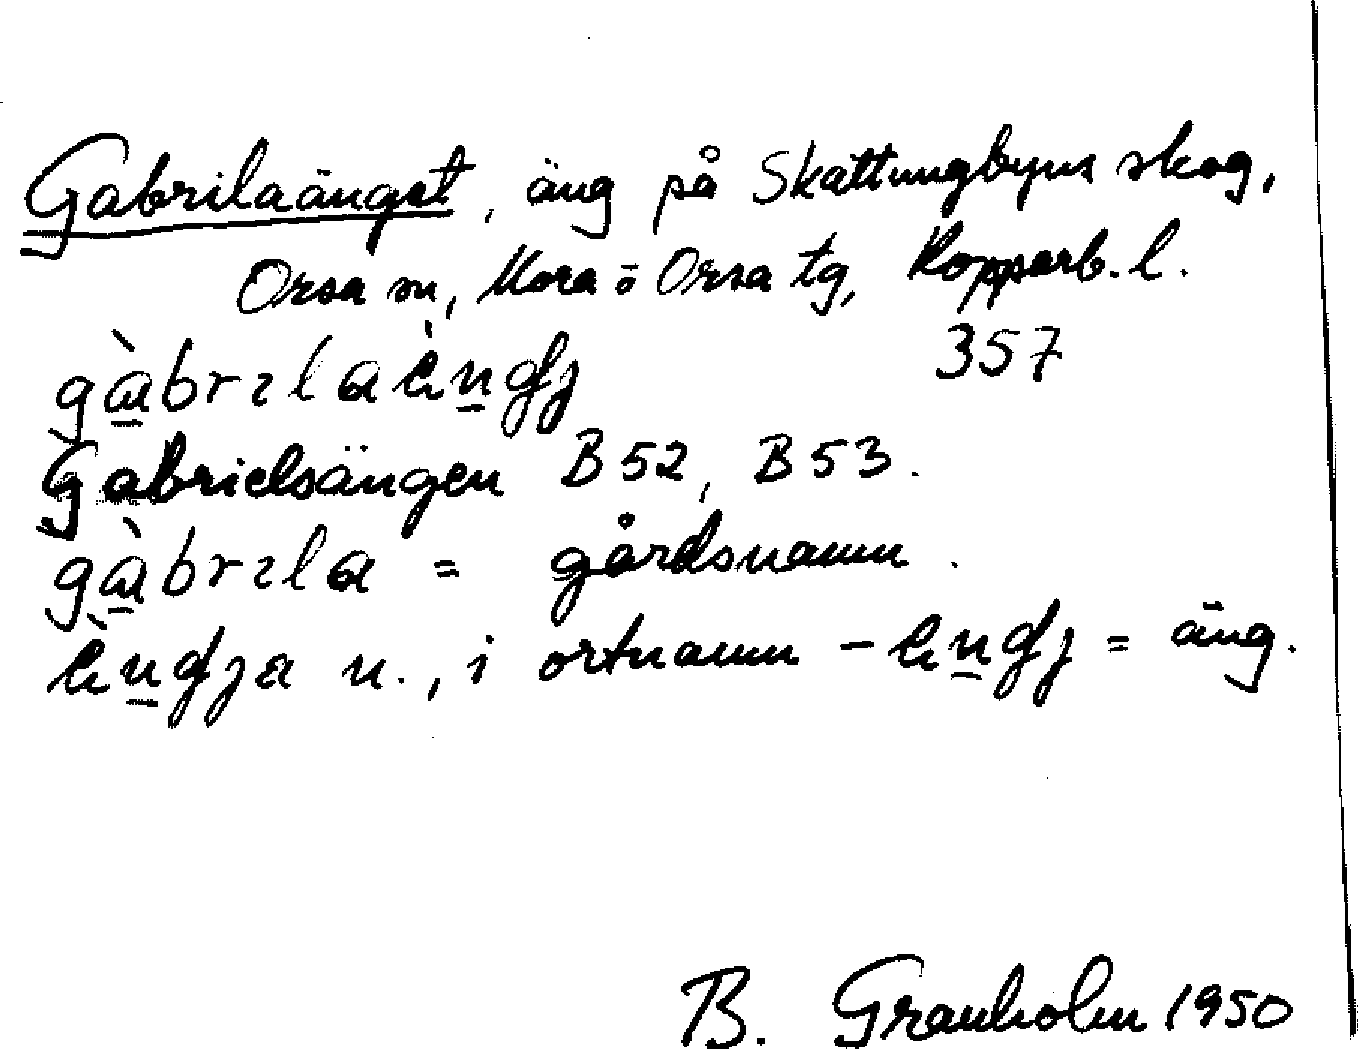 Gabrilaänget, äng på Skattungbyns skog,
Orsa sn, Mora o Orsa tg, Kopparb. l.
357
gàbrılaèŋgȷ
Gabrielsängen B 52, B 53.
gàbrıla = gårdsnamn.
èŋgȷa n., i ortnamn – eŋgȷ = äng.
B. Granholm 1950